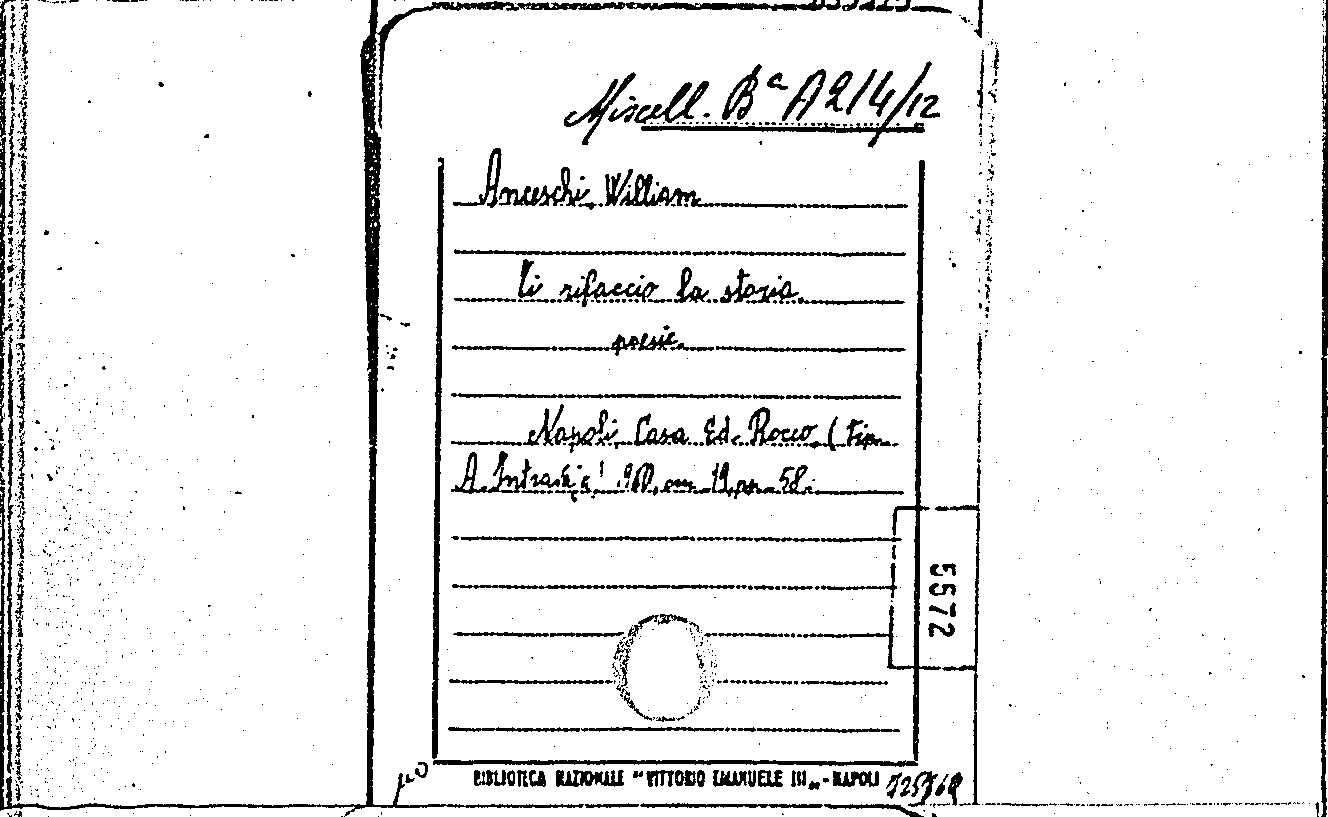 Miscell. Bª A214/12
Anceschi, William
Ti rifaccio la storia.
poesie.
Napoli, Casa Ed. Rocco (tip.
A. Intra 960, cm. 19, pp. 58.
5572
BIBLIOTECA NAZIONALE "VITTORIO EMANUELE III„ - NAPOLI